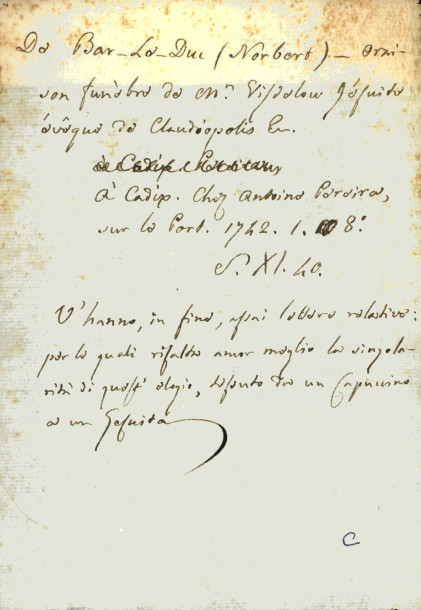 De Bar-Le-Duc (Norbert) - orai-
son funèbre de Mr. Visdelou Jésuite
évêque de Claudiopolis &c.
à Cadix. Chez Antoine Pereira,
sur le Port. 1742. 1. 8º
S. XI. 40.
V'hanno, in fine, assai lettere relative:
per le quali risalta ancor meglio la singola-
rità di quest' elogio, tessuto da un Capuccino
a un Gesuita
C